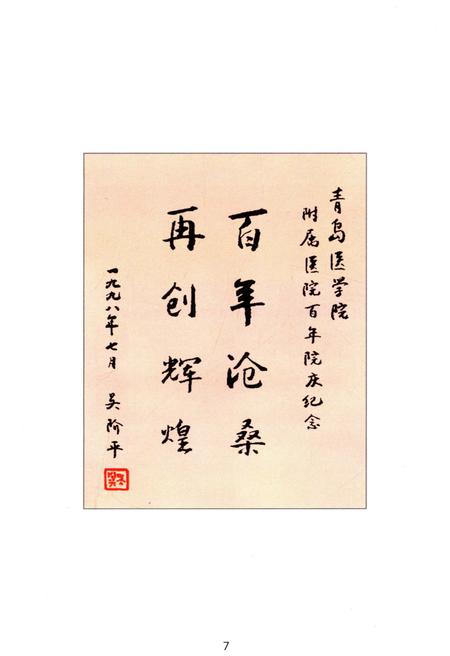 青岛医学院
附属医院百年院庆纪念
百年沧桑
再创辉煌
一九九八年七月 吴阶平
7